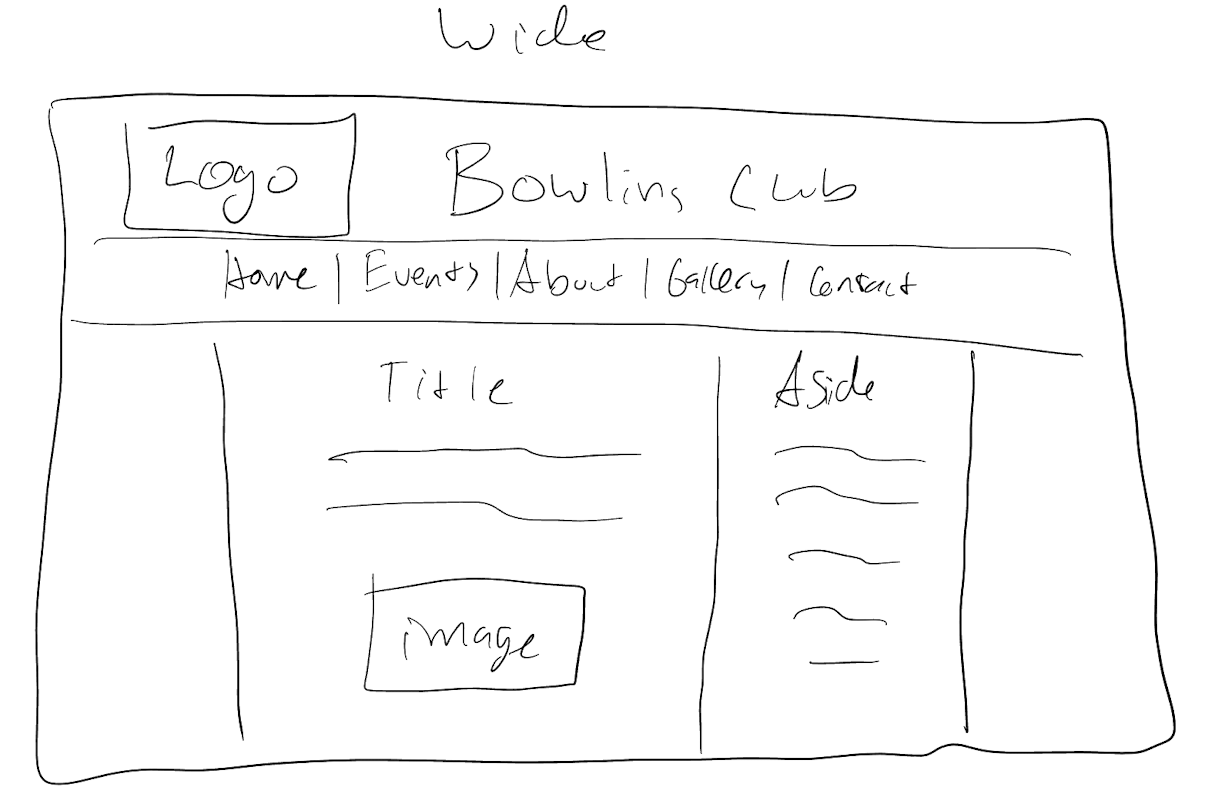 Wide
Logo
Bowling Club
Home | Events | About | Gallery | Contact
Title
Aside
image